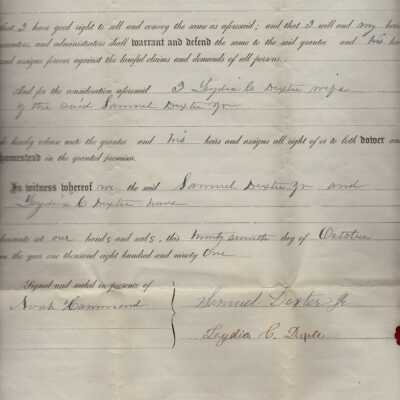 that I have good right to sell and convey the same as aforesaid; and that I will and my heirs
executors, and administrators shall warrant and defend the same to the said grantee and his heirs
and assigns forever against the lawful claims and demands of all persons.
And for the consideration aforesaid I Lydia C Dexter wife
of the said Samuel Dexter Jr
do hereby release unto the grantee and his heirs and assigns all right of or to both dower and
homestead in the granted premises.
In witness whereof we the said Samuel Dexter Jr and
Lydia C Dexter have
hereunto set our hands and seals, this twenty seventh day of October
in the year one thousand eight hundred and ninety One
Signed and sealed in presence of
Noah Hammond
Samuel Dexter Jr
Lydia C. Dexter